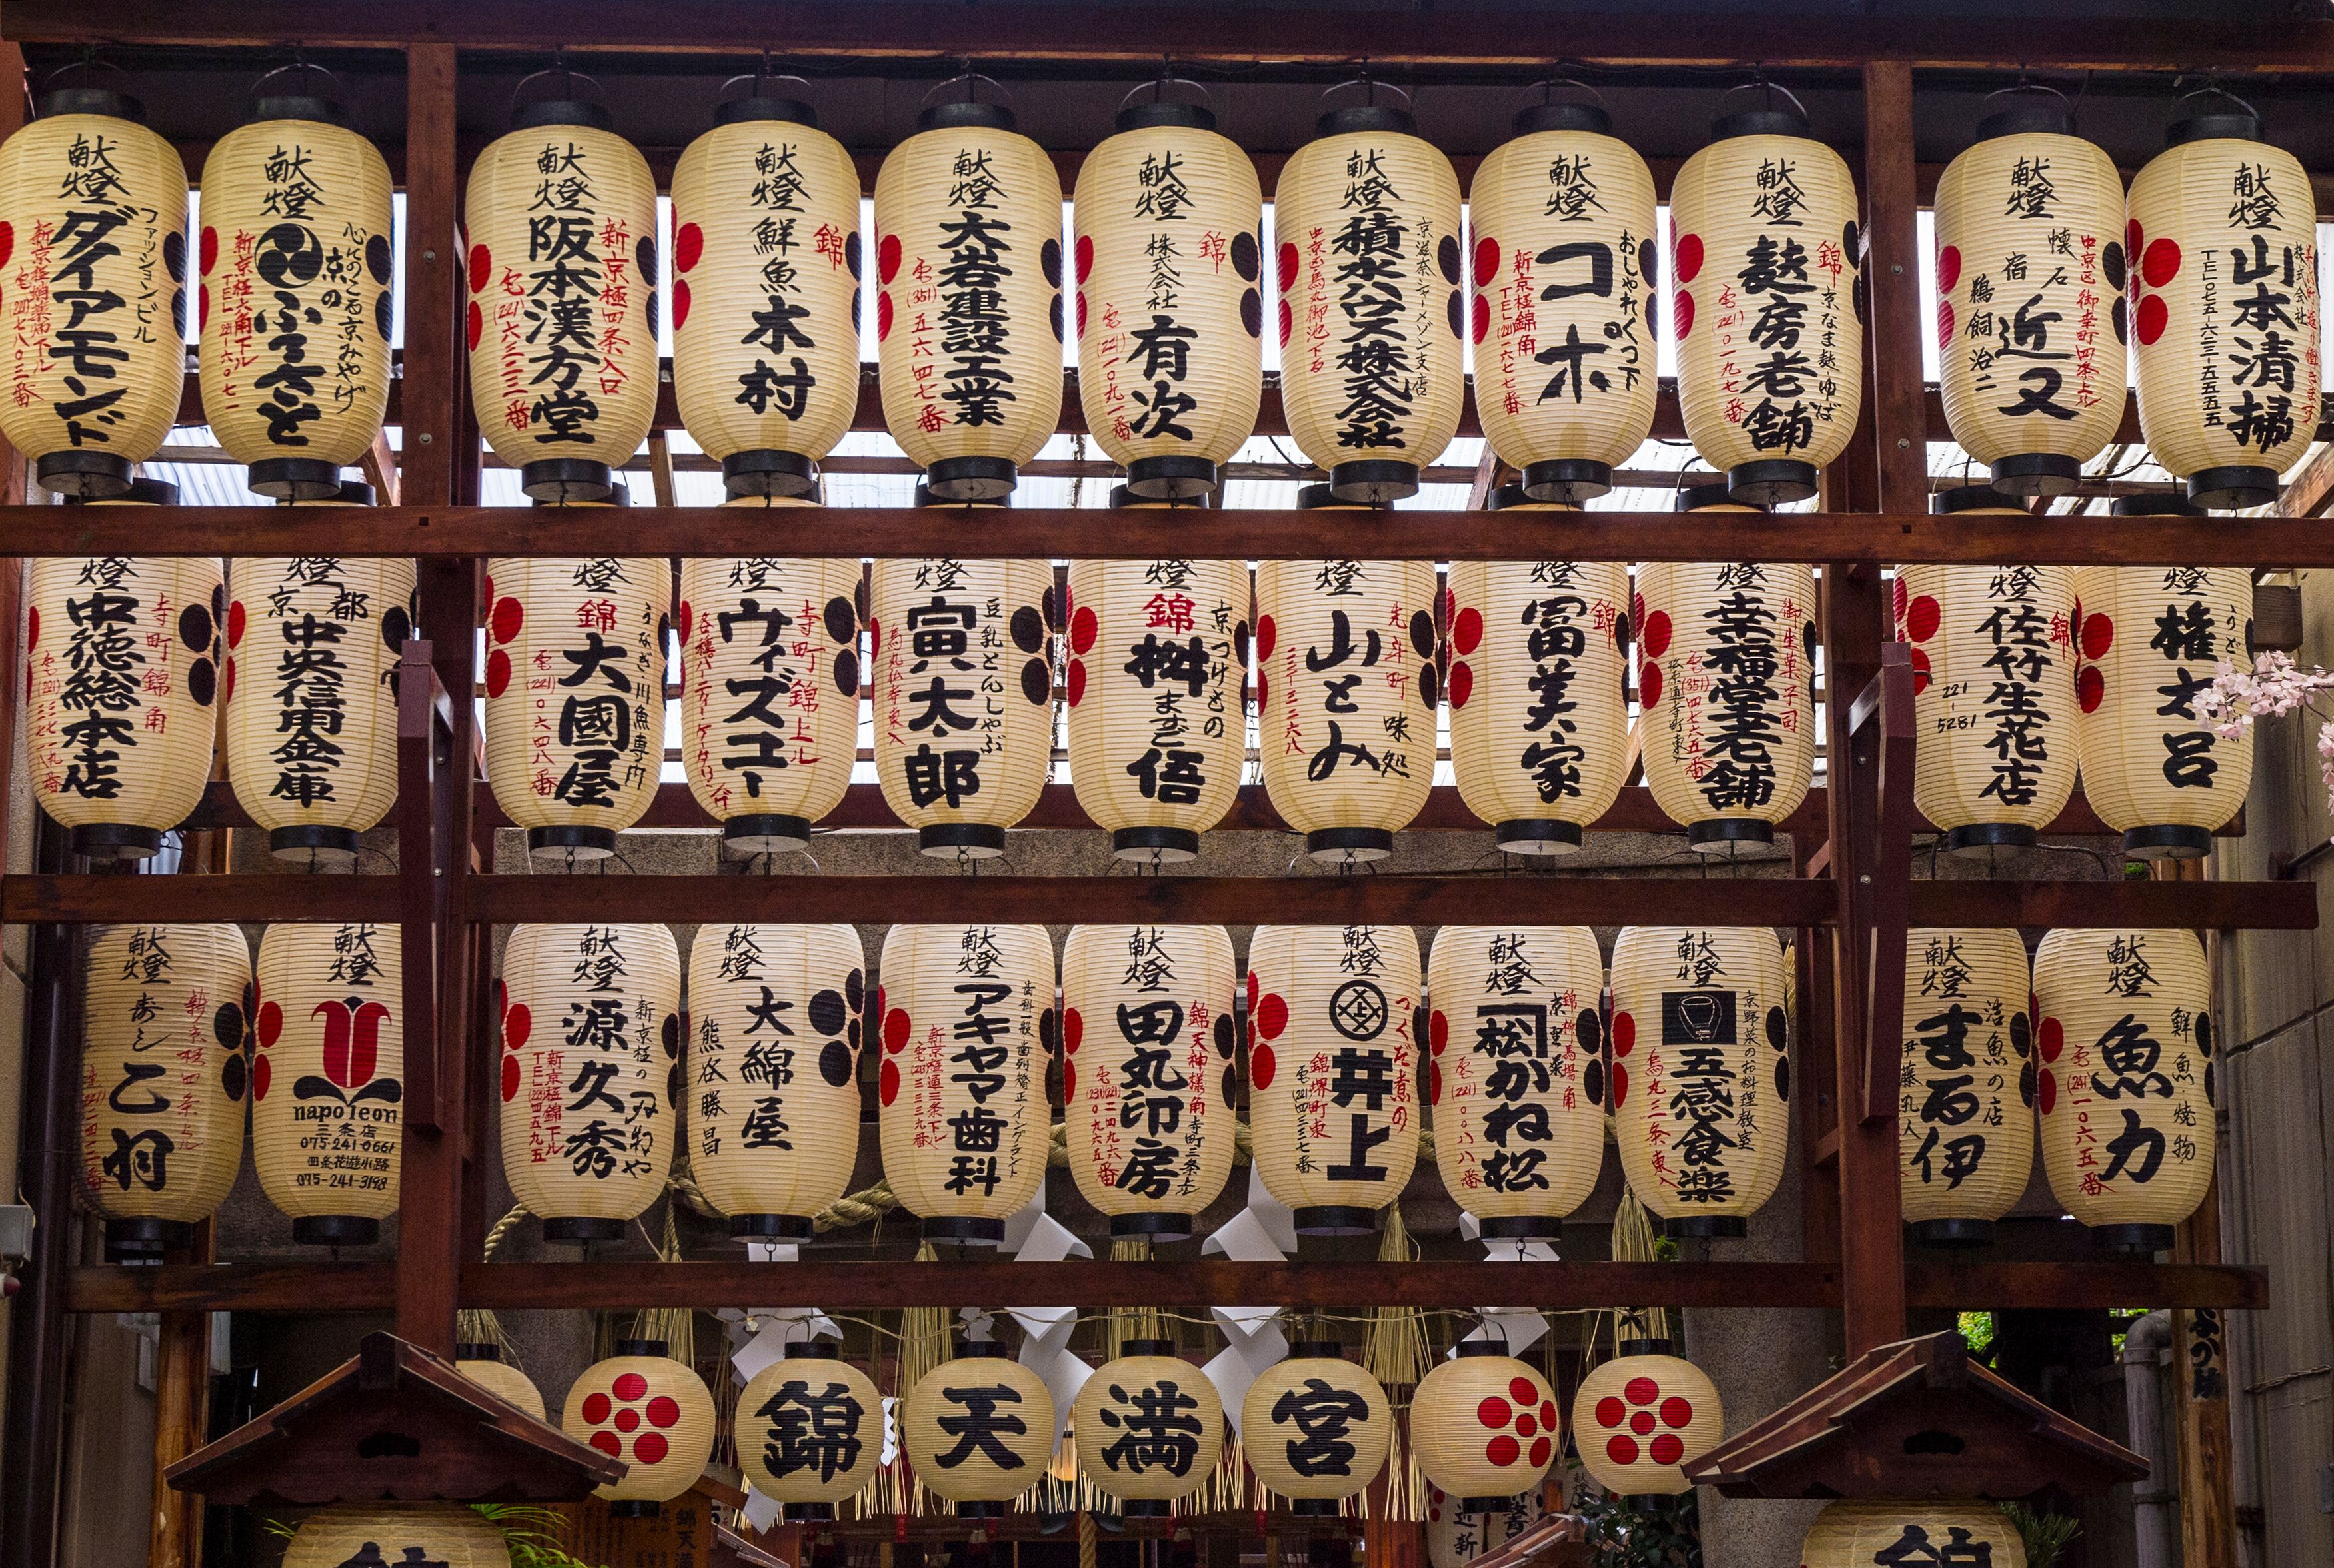 献燈 ファッションビル ダイアモンド
献燈 心にのこる京みやげ 京の ふるさと
新京極六角下ル
献燈 新京極四条入口 阪本漢方堂
電(221)六三三三番
献燈 錦 鮮魚 木村
献燈 大岩建設工業
電(351)五六四七番
献燈 錦 株式会社 有次
電(221)一〇九一番
献燈 京滋奈シャーメゾン支店 積水ハウス株式会社
中京区烏丸御池下る
献燈 おしゃれくつ下 コポ
新京極錦角
献燈 錦 京なま麩・ゆば 麩房老舗
電(221)〇一九七番
献燈 中京区御幸町四条上ル 懐石 宿 近又
鵜飼治二
献燈 株式会社 山本清掃
TEL〇七五-六三一-五五五五
燈 寺町錦角 中徳総本店
燈 京都 中央信用金庫
燈 うなぎ・川魚専門 錦 大國屋
電(221)〇六四八番
燈 寺町錦上ル ウィズユー
各種パーティーケータリング
燈 豆乳とんしゃぶ 寅太郎
烏丸仏光寺東入
燈 錦 京つけもの 桝悟 まずご
燈 先斗町 味処 山とみ
燈 錦 冨美家
燈 御生菓子司 幸福堂老舗
電(351)四七六五番
燈 錦 佐竹生花店
221-5281
燈 うどん 権太呂
献燈 新京極四条上ル 寿し 乙羽
献燈
napoleon
三条店
075-241-0661
四条花遊小路
075-241-3198
献燈 新京極の 刃物や 源久秀
新京極錦下ル
献燈 大綿屋
熊谷勝昌
献燈 歯科一般・歯列矯正・インプラント アキヤマ歯科
献燈 錦天神様角 寺町三条上ル 田丸印房
献燈 つくだ煮の 井上
錦堺町東
電(221)四三五七番
献燈 錦柳馬場角 京野菜 松 かね松
電(221)〇〇八八番
献燈 京野菜のお料理教室 五感食楽
烏丸三条東入
献燈 活魚の店 まる伊
献燈 鮮魚 焼物 魚力
電(241)一〇六五番
錦 天 満 宮